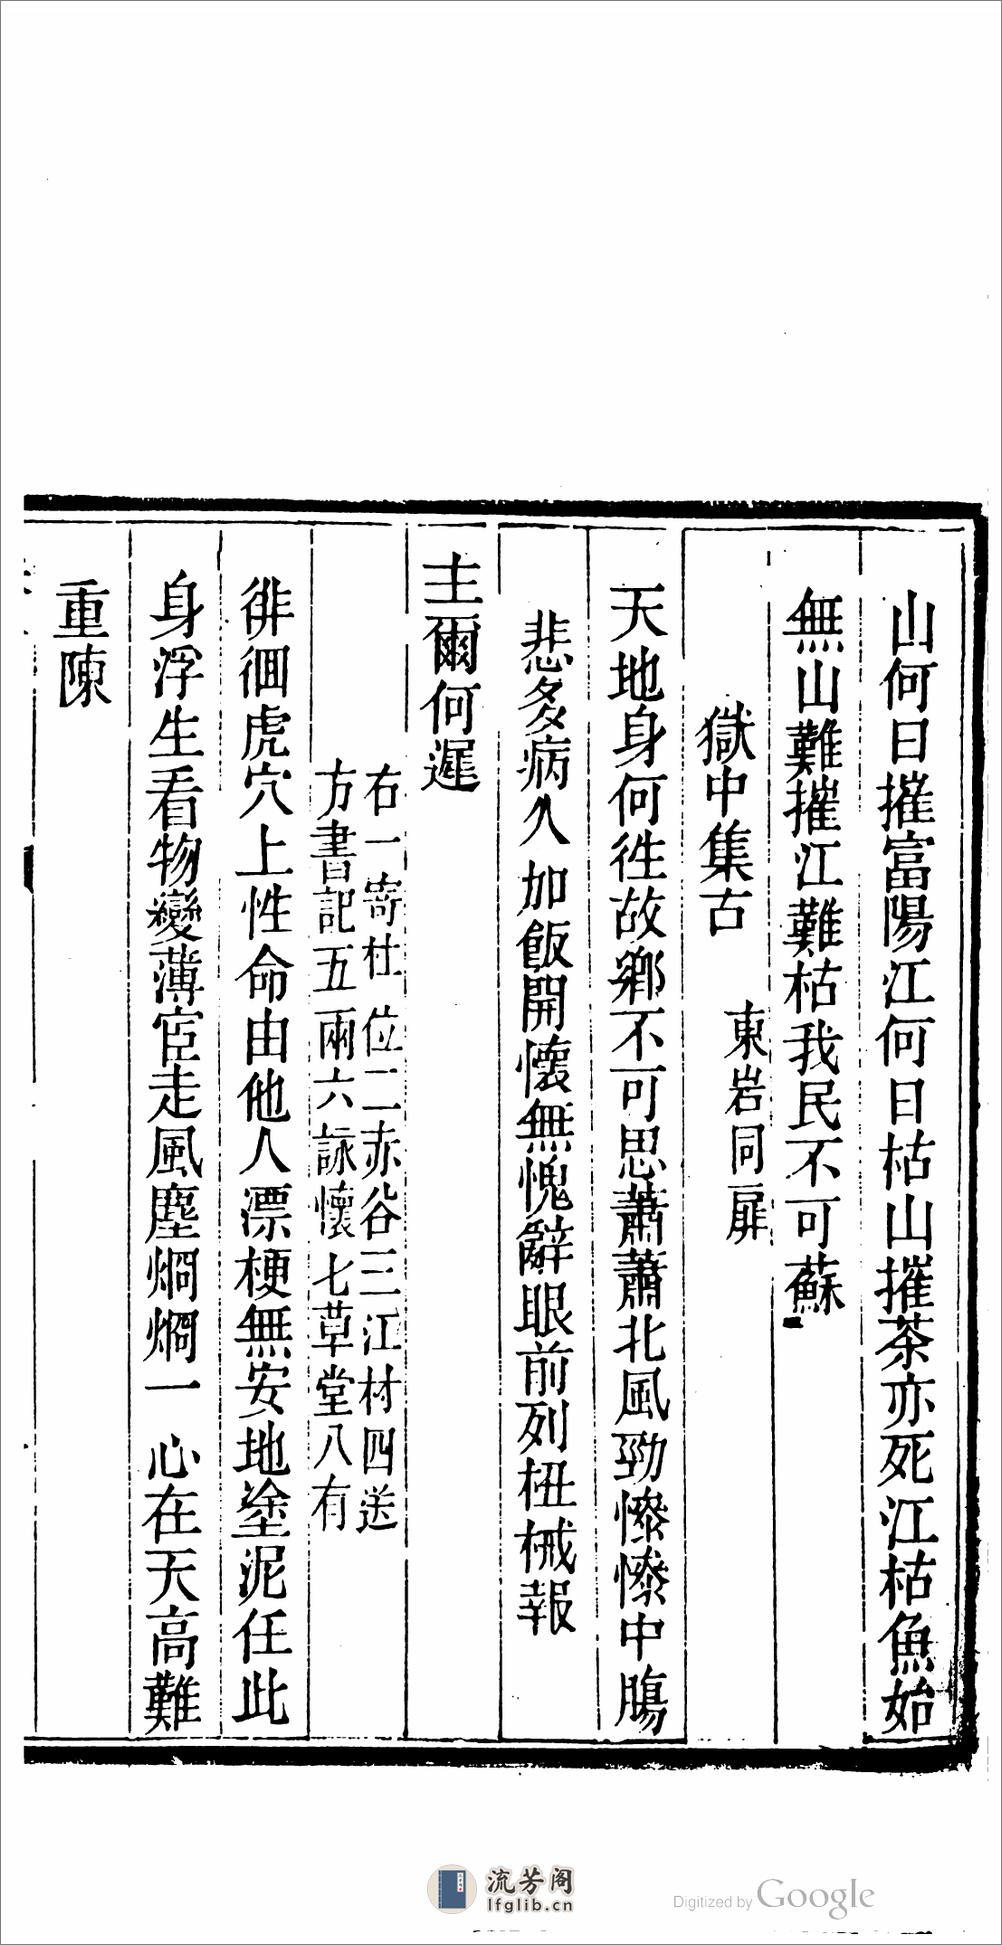 山何日摧富陽江何日枯山摧茶亦死江枯魚始
無山難摧江難枯我民不可蘇
獄中集古
東岩同扉
天地身何徃故鄉不可思蕭蕭北風勁慘慘中腸
悲多病久加飯開懷無愧辭眼前列杻械報
主爾何遲
右一寄杜位二赤谷三江村四送
方書記五兩六詠懷七草堂八有
徘徊虎穴上性命由他人漂梗無安地塗泥任此
身浮生看物變薄宦走風塵烱烱一心在天高難
重陳
流芳阁
lfglib.cn
Digitized by Google